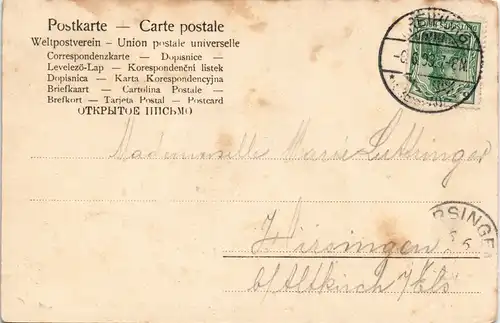 Postkarte — Carte postale
Weltpostverein – Union postale universelle
Correspondenzkarte — Dopisnice —
Levelező-Lap — Korespondenční listek
Dopisnica — Karta Korespondencyjna
Briefkaart — Cartolina Postale —
Brefkort — Tarjeta Postal — Postcard
ОТКРЫТОЕ ПИСЬМО
Mademoiselle Marie Lutthringer
Hirsingen
b/Altkirch i/Els
RSINGE